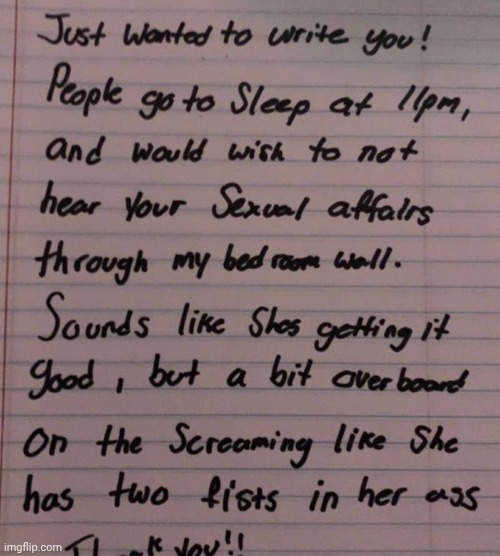 Just Wanted to write you!
People go to Sleep at 11pm,
and would wish to not
hear Your Sexual affairs
through my bedroom wall.
Sounds like Shes getting it
good, but a bit overboard
On the Screaming like She
has two fists in her ass
You!!
imgflip.com